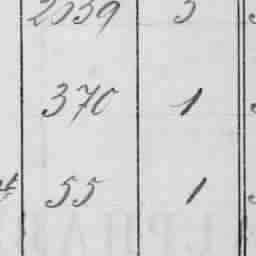 2539 3
370 1
55 1